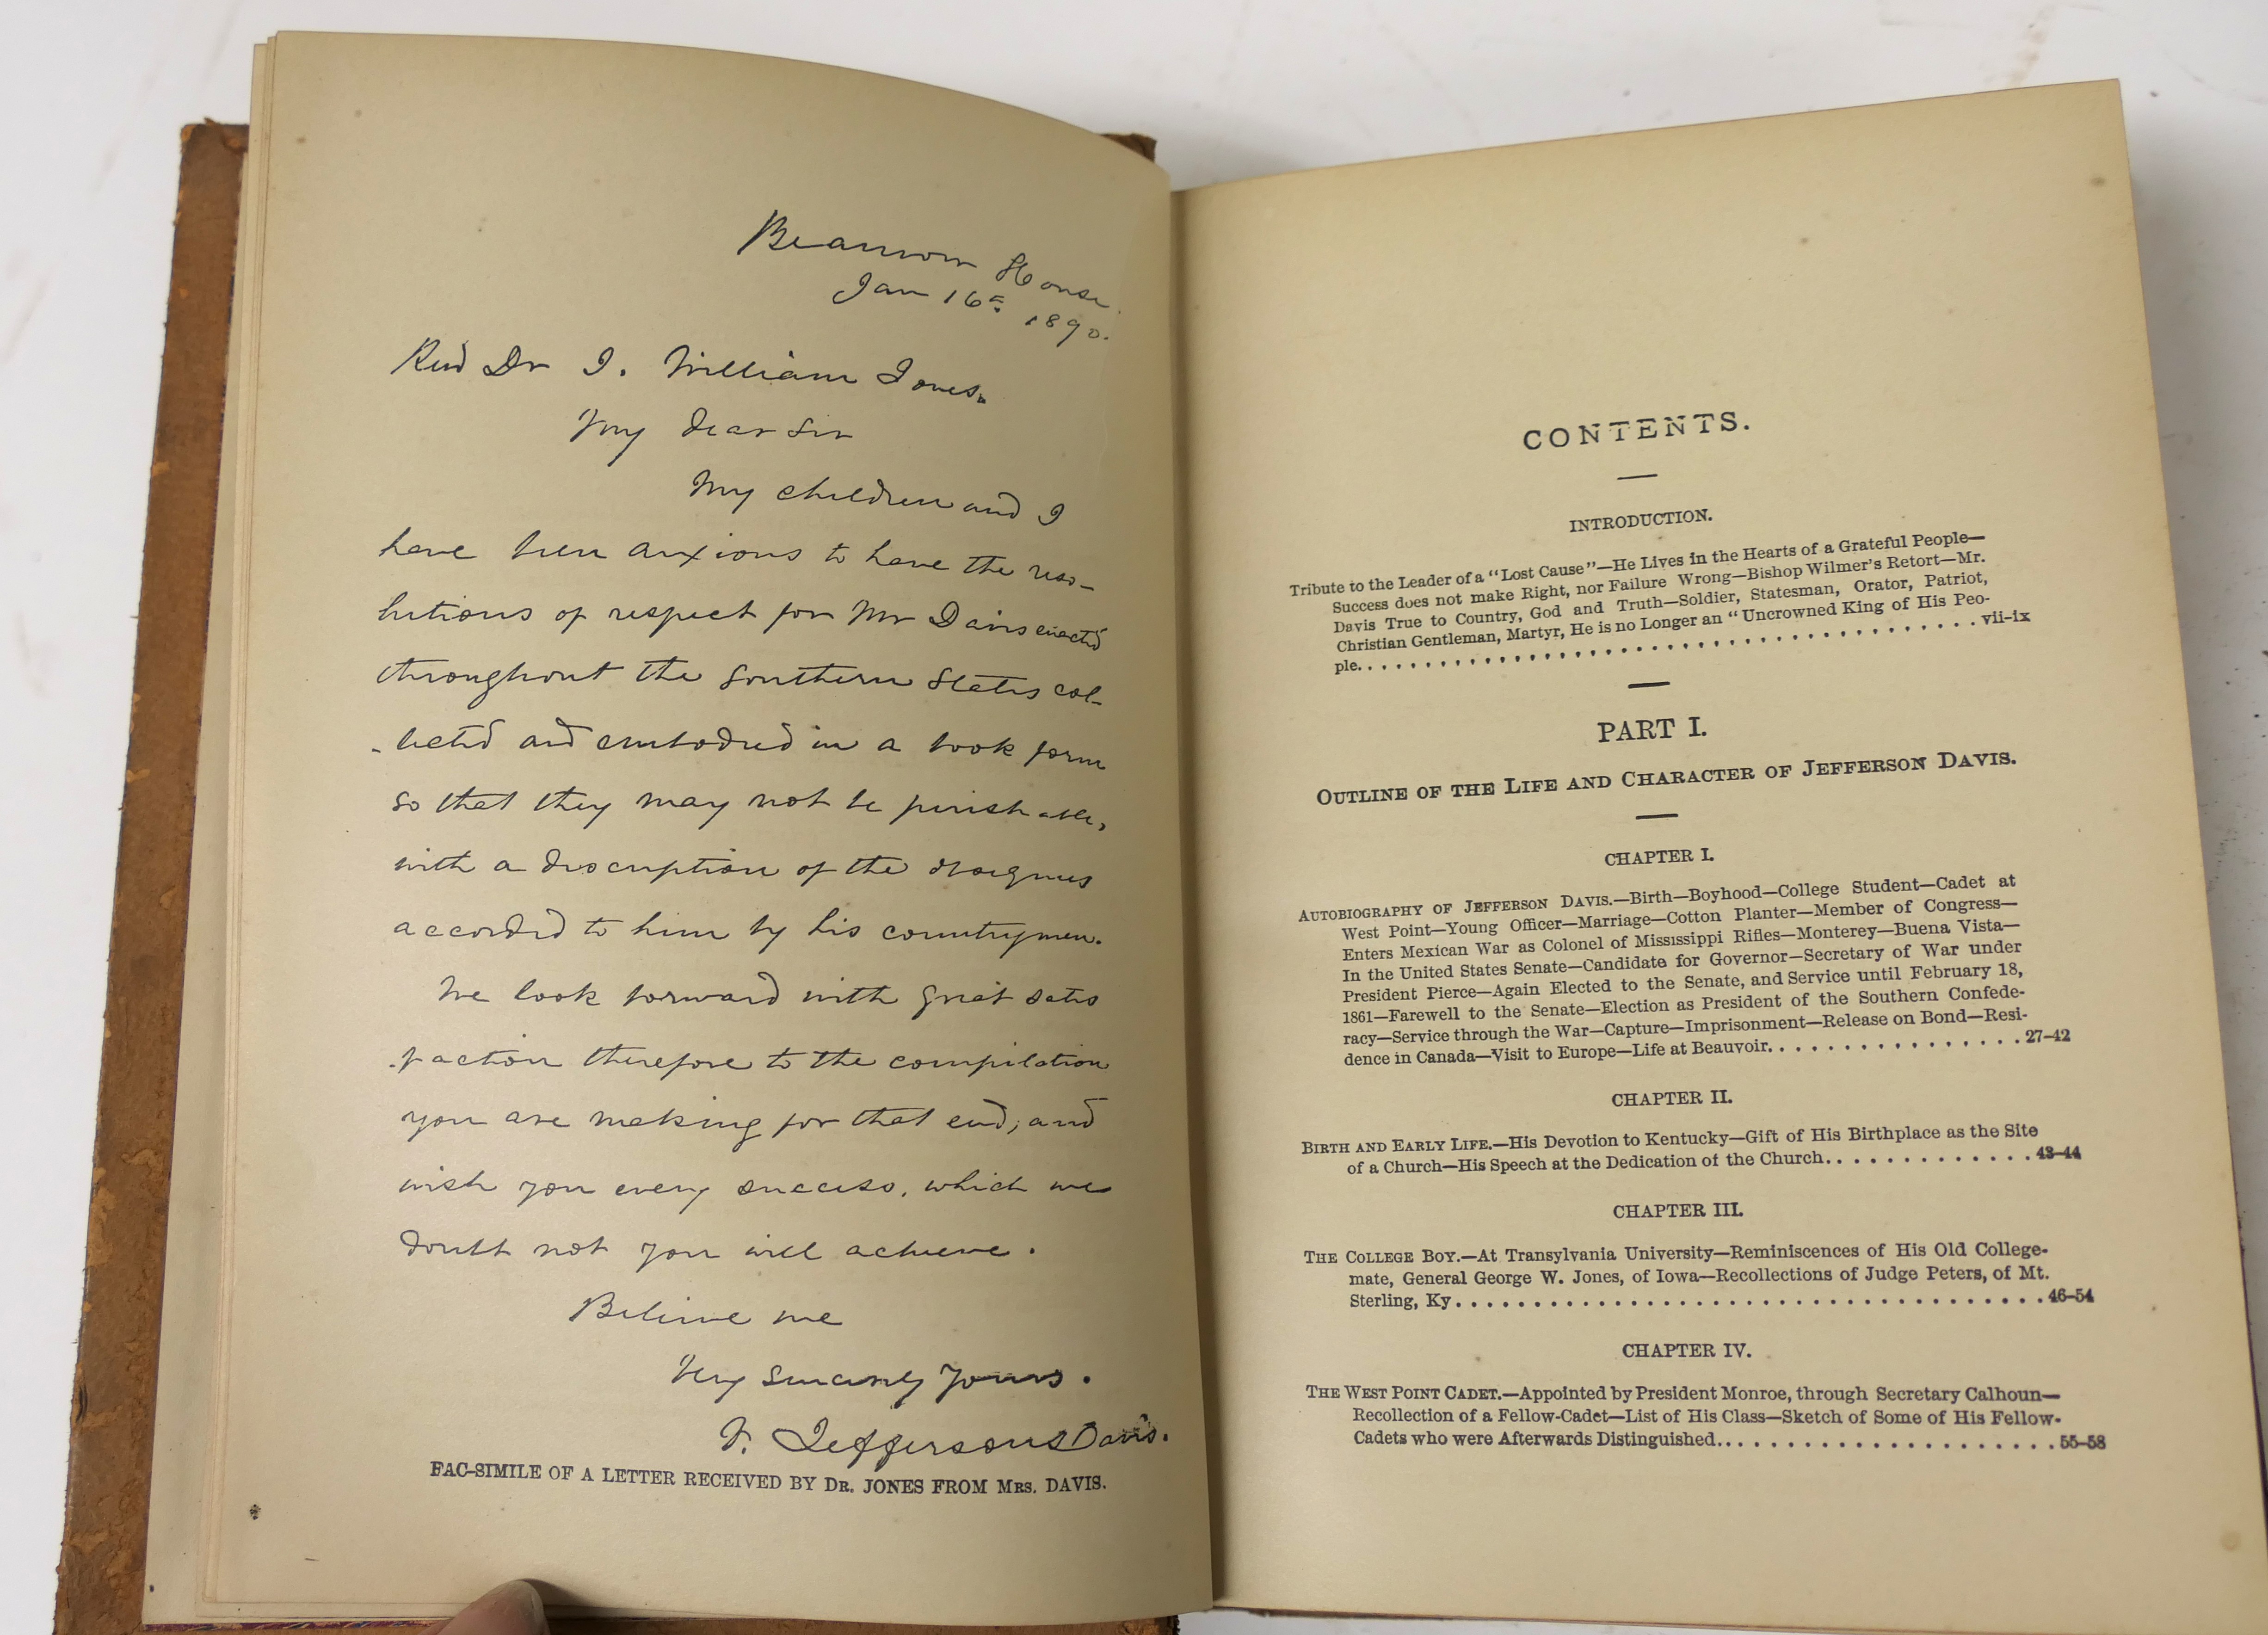 Beauvoir House.
Jan 16th 1890.
Revd Dr J. William Jones.
My dear Sir
My children and I
have been anxious to have the reso-
lutions of respect for Mr Davis enacted
throughout the Southern States col-
-lected and embodied in a book form
so that they may not be perishable,
with a discription of the obsequies
accorded to him by his countrymen.
We look forward with great satis
-faction therefore to the compilation
you are making for that end; and
wish you every success, which we
doubt not you will achieve.
Believe me
Very Sincerely Yours.
V. Jefferson Davis.
FAC-SIMILE OF A LETTER RECEIVED BY DR. JONES FROM MRS. DAVIS.
CONTENTS.
INTRODUCTION.
Tribute to the Leader of a "Lost Cause"—He Lives in the Hearts of a Grateful People—
Success does not make Right, nor Failure Wrong—Bishop Wilmer's Retort—Mr.
Davis True to Country, God and Truth—Soldier, Statesman, Orator, Patriot,
Christian Gentleman, Martyr, He is no Longer an "Uncrowned King of His Peo-
ple. . . . . . . . . . . . . . . . . . . . . . . . . . . . . . . . . vii-ix
PART I.
OUTLINE OF THE LIFE AND CHARACTER OF JEFFERSON DAVIS.
CHAPTER I.
AUTOBIOGRAPHY OF JEFFERSON DAVIS.—Birth—Boyhood—College Student—Cadet at
West Point—Young Officer—Marriage—Cotton Planter—Member of Congress—
Enters Mexican War as Colonel of Mississippi Rifles—Monterey—Buena Vista—
In the United States Senate—Candidate for Governor—Secretary of War under
President Pierce—Again Elected to the Senate, and Service until February 18,
1861—Farewell to the Senate—Election as President of the Southern Confede-
racy—Service through the War—Capture—Imprisonment—Release on Bond—Resi-
dence in Canada—Visit to Europe—Life at Beauvoir. . . . . . . . . . . . . . . 27-42
CHAPTER II.
BIRTH AND EARLY LIFE.—His Devotion to Kentucky—Gift of His Birthplace as the Site
of a Church—His Speech at the Dedication of the Church. . . . . . . . . . . . . 43-44
CHAPTER III.
THE COLLEGE BOY.—At Transylvania University—Reminiscences of His Old College-
mate, General George W. Jones, of Iowa—Recollections of Judge Peters, of Mt.
Sterling, Ky. . . . . . . . . . . . . . . . . . . . . . . . . . . . . . . . . . . . . 46-54
CHAPTER IV.
THE WEST POINT CADET.—Appointed by President Monroe, through Secretary Calhoun—
Recollection of a Fellow-Cadet—List of His Class—Sketch of Some of His Fellow-
Cadets who were Afterwards Distinguished. . . . . . . . . . . . . . . . . . . . . 55-58